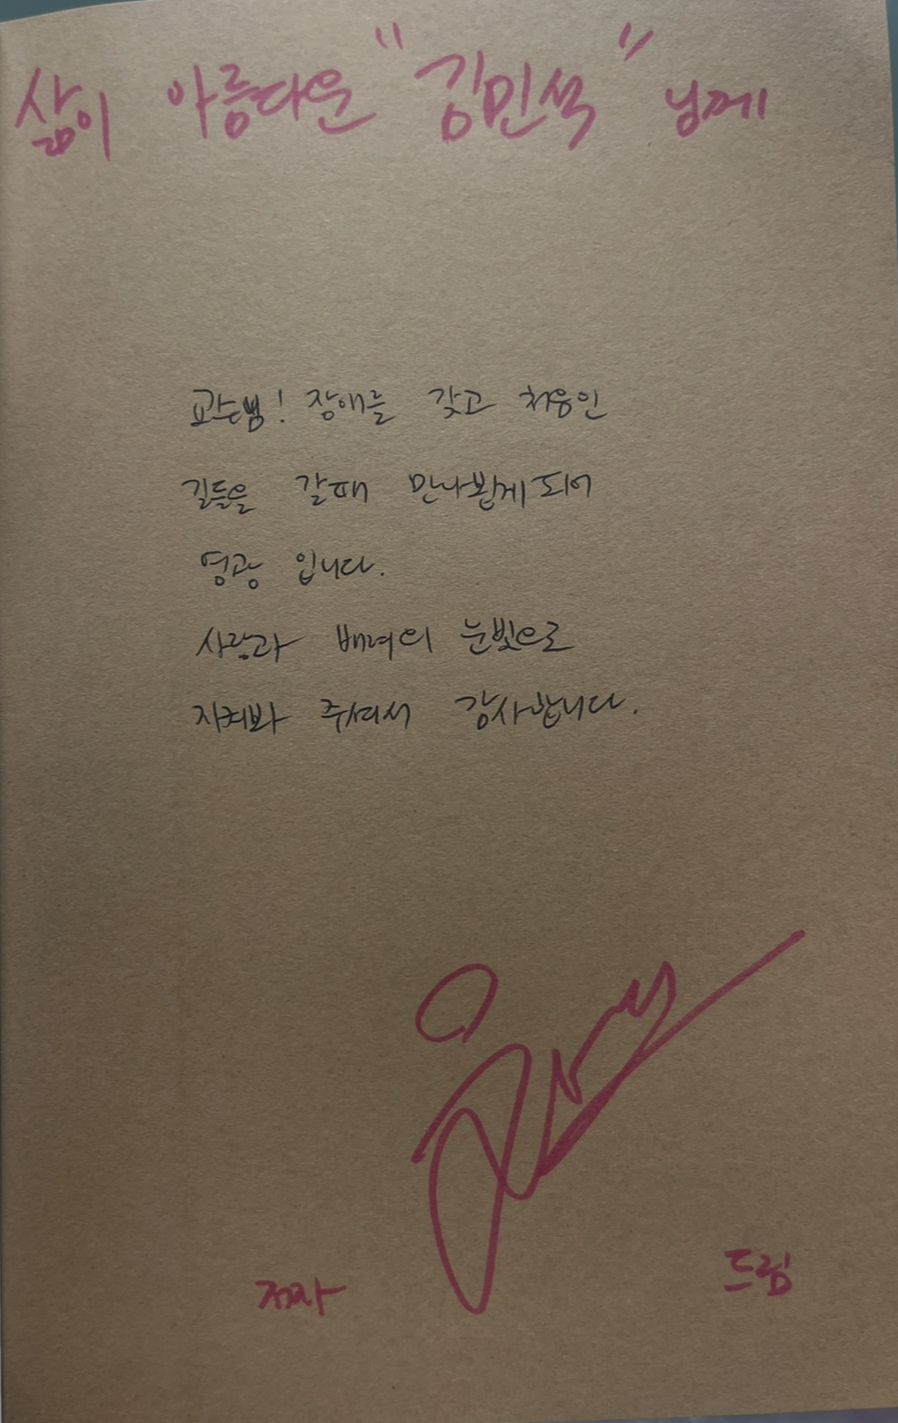 삶이 아름다운 "김민석" 님께
교수님! 장애를 갖고 처음인
길들을 갈때 만나뵙게되어
영광 입니다.
사랑과 배려의 눈빛으로
지켜봐 주셔서 감사합니다.
저자 드림